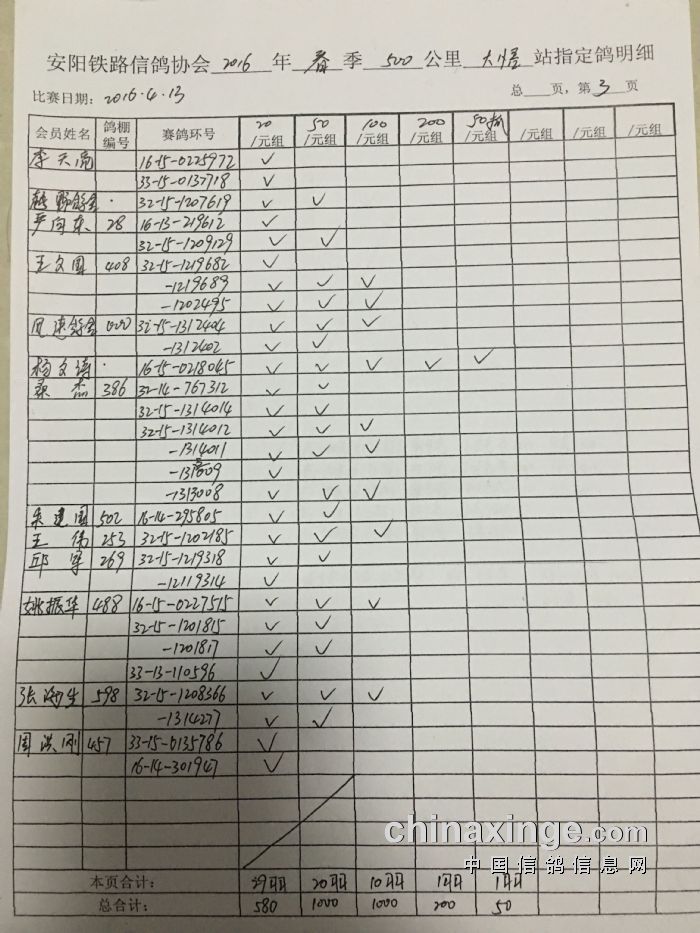 安阳铁路信鸽协会 2016 年 春 季 500 公里 大悟 站指定鸽明细
比赛日期: 2016.4.13 总 页, 第 3 页
会员姓名 鸽棚编号 赛鸽环号 20/元组 50/元组 100/元组 200/元组 50抓/元组 /元组 /元组 /元组
李天 16-15-0225972 ✓
33-15-0137718 ✓
32-15-1207619 ✓ ✓
严向东 28 16-13-219612 ✓
32-15-1209129 ✓ ✓
王文国 408 32-15-1219682 ✓
-1219689 ✓ ✓ ✓
-1202495 ✓ ✓ ✓
32-15-1312404 ✓ ✓ ✓
-1312402 ✓ ✓
杨文涛 16-15-0218045 ✓ ✓ ✓ ✓ ✓
桑杰 386 32-14-767312 ✓ ✓
32-15-1314014 ✓ ✓
32-15-1314012 ✓ ✓ ✓
-1314011 ✓ ✓ ✓
✓
-1313008 ✓ ✓ ✓
朱建国 502 16-14-295805 ✓ ✓
王伟 253 32-15-1202185 ✓ ✓ ✓
邱军 269 32-15-1219318 ✓ ✓
-12119314 ✓
姚振华 488 16-15-0227515 ✓ ✓ ✓
32-15-1201815 ✓ ✓
-1201817 ✓ ✓
33-13-110596 ✓
张海生 598 32-15-1208366 ✓ ✓ ✓
-1314277 ✓ ✓
周洪刚 457 33-15-0135786 ✓
16-14-301947 ✓
本页合计: 29羽 20羽 10羽 1羽 1羽
总合计: 580 1000 1000 200 50
chinaxinge.com
中国信鸽信息网